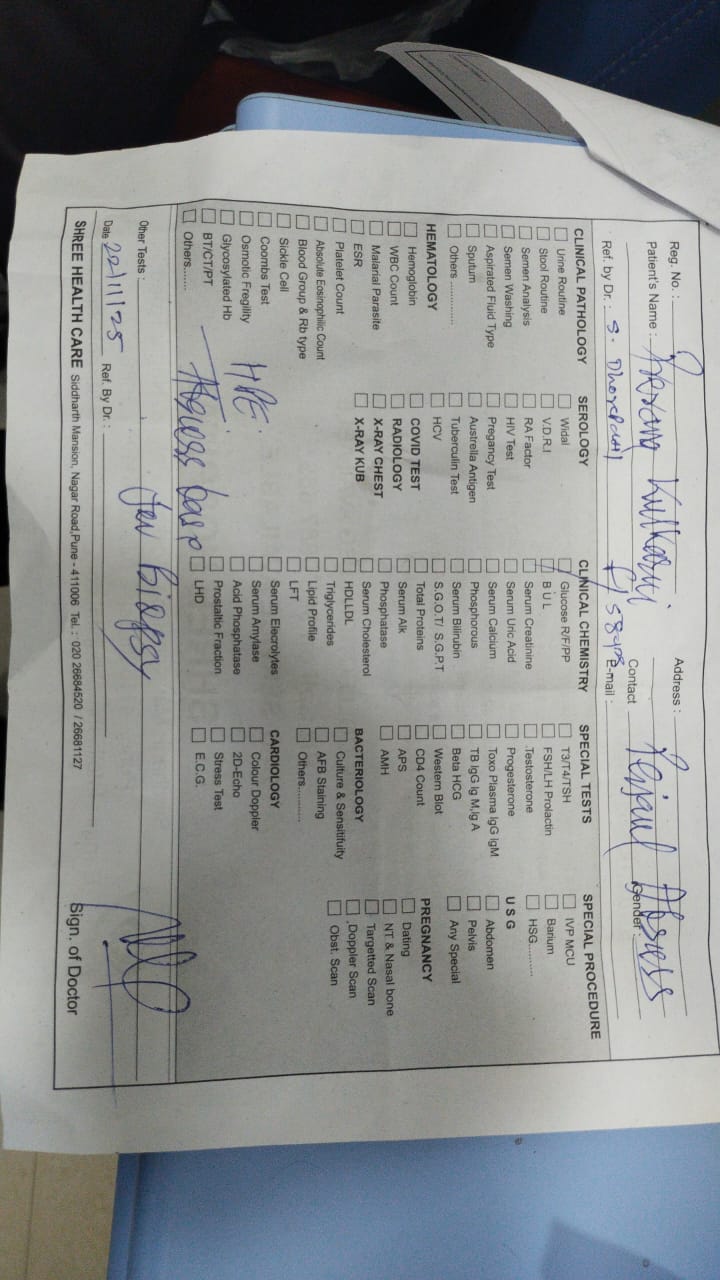 Reg. No. :
Address :
Patient's Name : Kulkarni
Contact Gender :
Ref. by Dr. : S. F/58yrs E-mail :
CLINICAL PATHOLOGY
Urine Routine
Stool Routine
Semen Analysis
Semen Washing
Aspirated Fluid Type
Sputum
Others ............
HEMATOLOGY
Hemoglobin
WBC Count
Malarial Parasite
ESR
Platelet Count
Absolute Eosinophilic Count
Blood Group & Rb type
Sickle Cell
Coombs Test
Osmotic Fregility
Glycosylated Hb
BT/CT/PT
Others.......
SEROLOGY
Widal
V.D.R.I
RA Factor
HIV Test
Pregancy Test
Austrella Antigen
Tuberculin Test
HCV
COVID TEST
RADIOLOGY
X-RAY CHEST
X-RAY KUB
CLINICAL CHEMISTRY
Glucose R/F/PP
B U L
Serum Creatinine
Serum Uric Acid
Serum Calcium
Phosphorous
Serum Bilirubin
S.G.O.T/ S.G.P.T
Total Proteins
Serum Alk
Phosphatase
Serum Cholesterol
HDLLDL
Triglycerides
Lipid Profile
LFT
Serum Elecrolytes
Serum Amylase
Acid Phosphatase
Prostaltic Fraction
LHD
SPECIAL TESTS
T3/T4/TSH
FSH/LH Prolactin
Testosterone
Progesterone
Toxo Plasma IgG IgM
TB IgG Ig M,Ig A
Beta HCG
Western Blot
CD4 Count
APS
AMH
BACTERIOLOGY
Culture & Sensitifuity
AFB Staining
Others..........
CARDIOLOGY
Colour Doppler
2D-Echo
Stress Test
E.C.G.
SPECIAL PROCEDURE
IVP MCU
Barium
HSG.........
U S G
Abdomen
Pelvis
Any Special
PREGNANCY
Dating
NT & Nasal bone
Targetted Scan
Doppler Scan
Obst. Scan
HPE
Other Tests : Biopsy
Date 22/11/25 Ref. By Dr. :
SHREE HEALTH CARE Siddharth Mansion, Nagar Road,Pune - 411006 Tel. : 020 26684520 / 26681127
Sign. of Doctor